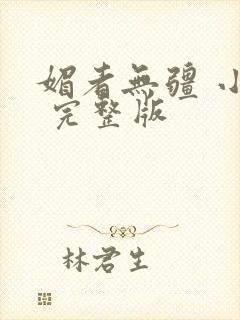 媚者無疆 小
完整版
林君生